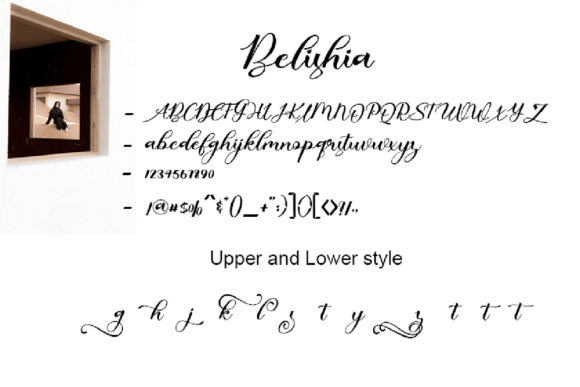 Belishia
- ABCDEFGHIJKLMNOPQRSTUVWXYZ
- abcdefghijklmnopqrstuvwxyz
- 1234567890
Upper and Lower style
g h j k l s t y
t t t